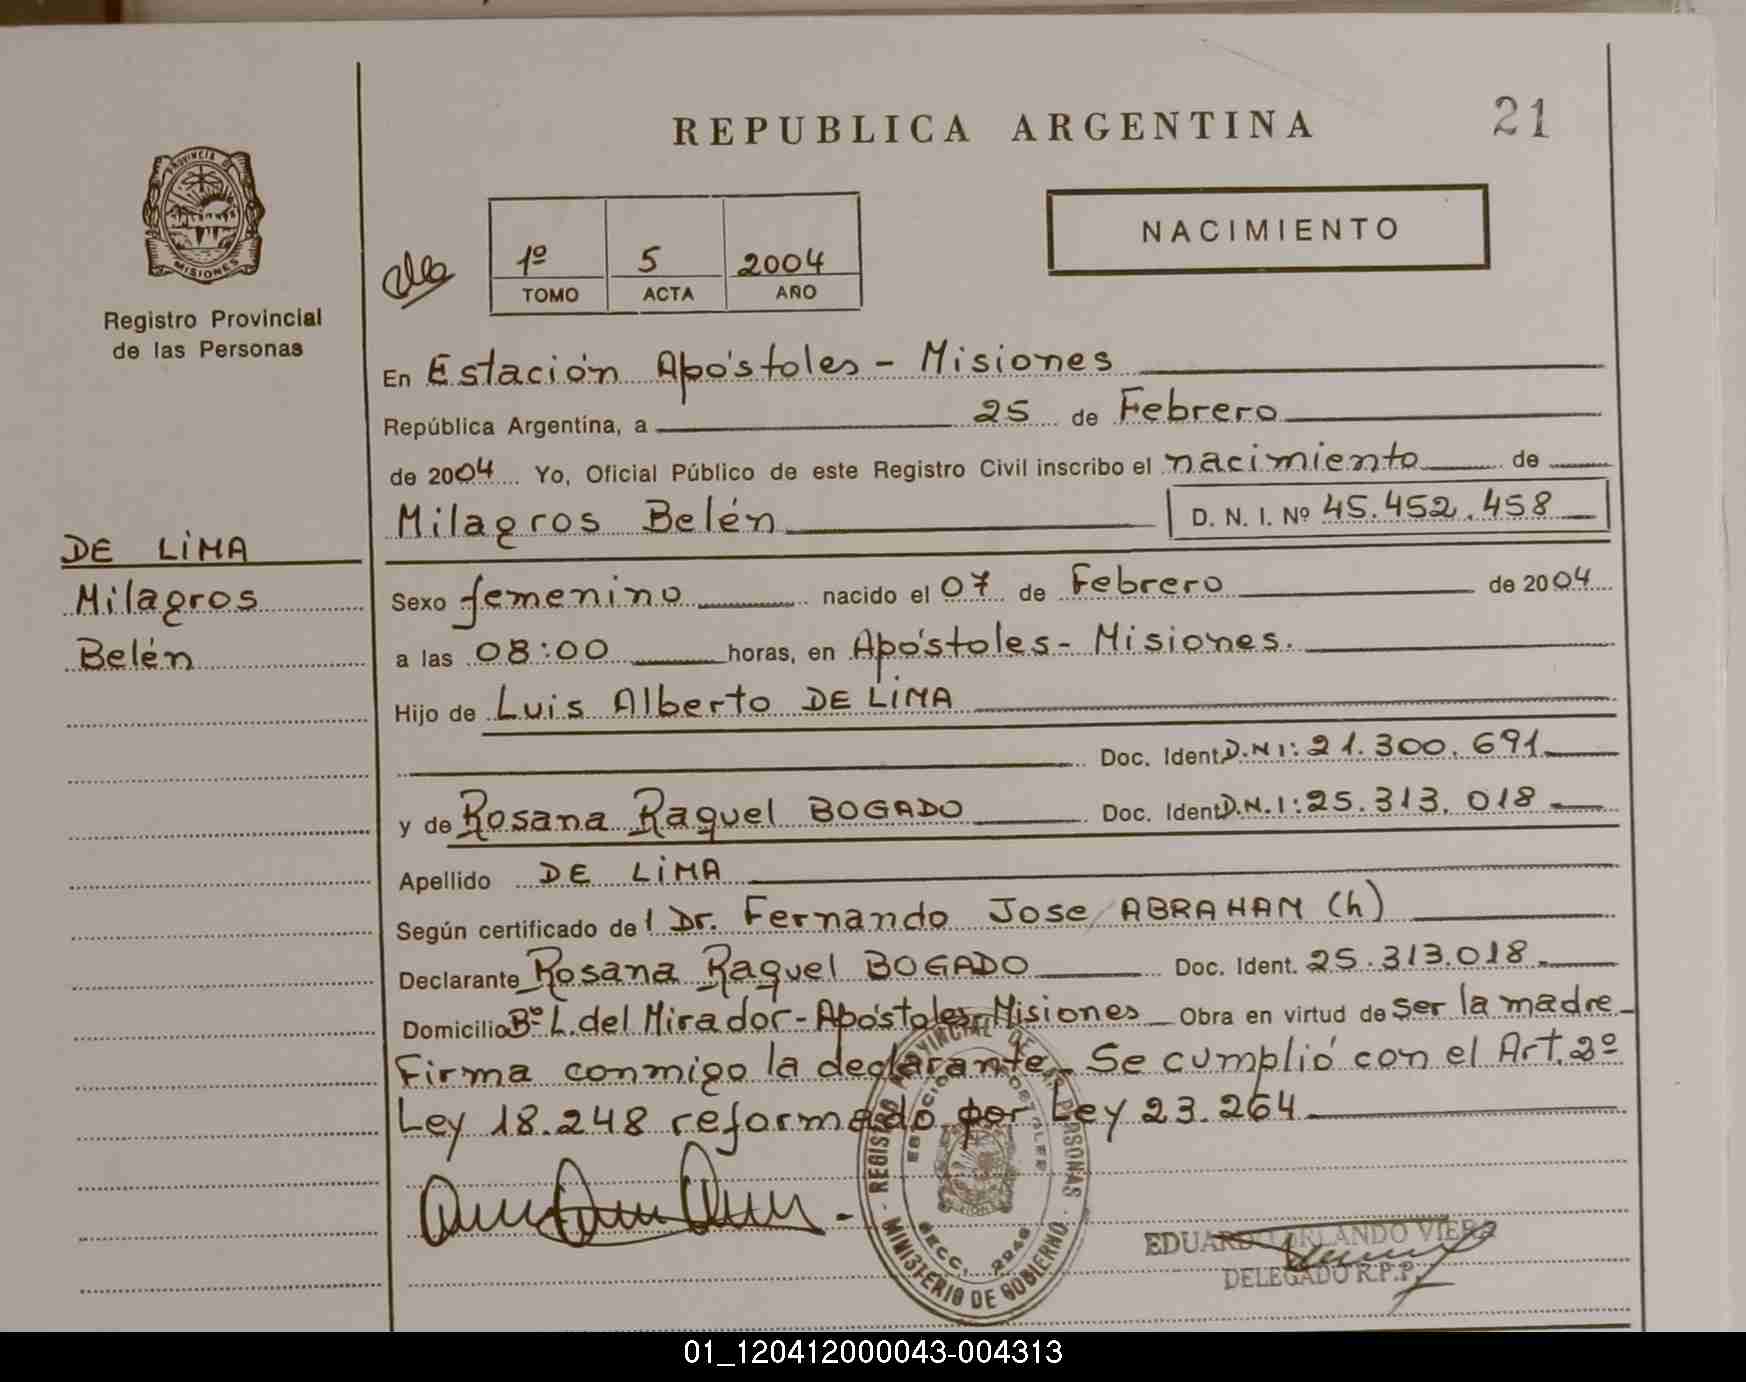 REPUBLICA ARGENTINA
21
PROVINCIA DE
MISIONES
Registro Provincial
de las Personas
1º 5 2004
TOMO ACTA AÑO
NACIMIENTO
En Estación Apóstoles - Misiones
República Argentina, a 25 de Febrero
de 2004 Yo, Oficial Público de este Registro Civil inscribo el nacimiento de
Milagros Belén D. N. I. Nº 45.452.458
DE LiMA
Milagros
Belén
Sexo femenino nacido el 07 de Febrero de 2004
a las 08:00 horas, en Apóstoles - Misiones.
Hijo de Luis Alberto DE LiMA
Doc. Ident. D.N I: 21.300.691
y de Rosana Raquel BOGADO Doc. Ident. D.N.I: 25.313.018
Apellido DE LiMA
Según certificado de l Dr. Fernando Jose ABRAHAM (h)
Declarante Rosana Raquel BOGADO Doc. Ident. 25.313.018
Domicilio Bº L. del Mirador - Apóstoles - Misiones Obra en virtud de ser la madre
Firma conmigo la declarante. Se cumplió con el Art. 2º
Ley 18.248 reformado por Ley 23.264
REGISTRO PROVINCIAL DE LAS PERSONAS
MINISTERIO DE GOBIERNO
ESTACION APOSTOLES
SECC. 2246
EDUARDO ORLANDO VIERA
DELEGADO R.P.P.
01_120412000043-004313